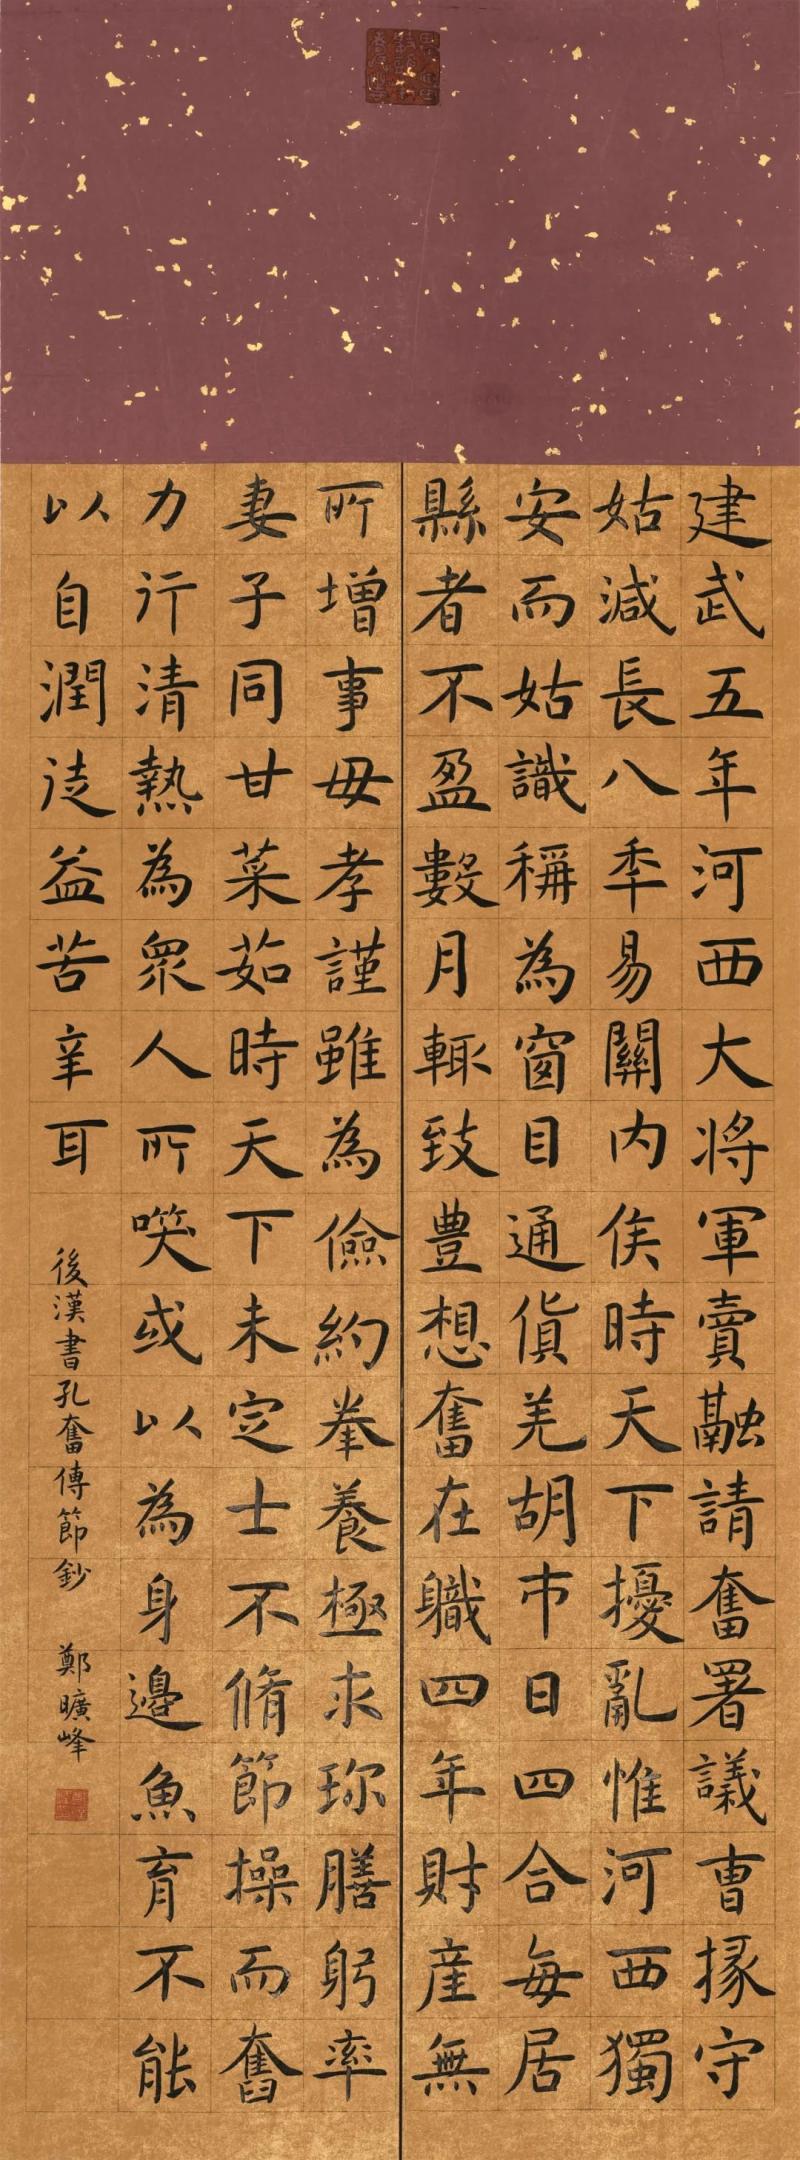 建武五年河西大將軍賣融請奮署議曹掾守
姑減長八秊易關内侯時天下擾亂惟河西獨
安而姑識稱為窗目通貨羌胡市日四合每居
縣者不盈數月輒致豊想奮在職四年財産無
所增事毋孝謹雖為儉約拳養極求珎膳躬率
妻子同甘菜茹時天下未定士不脩節操而奮
力行清熱為衆人所噗或以為身邊魚育不能
以自潤徒益苦辛耳
後漢書孔奮傳節鈔 鄭曠峰